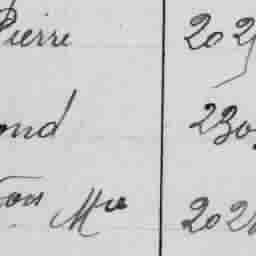 Pierre 202
ond 230
ois Mre 202